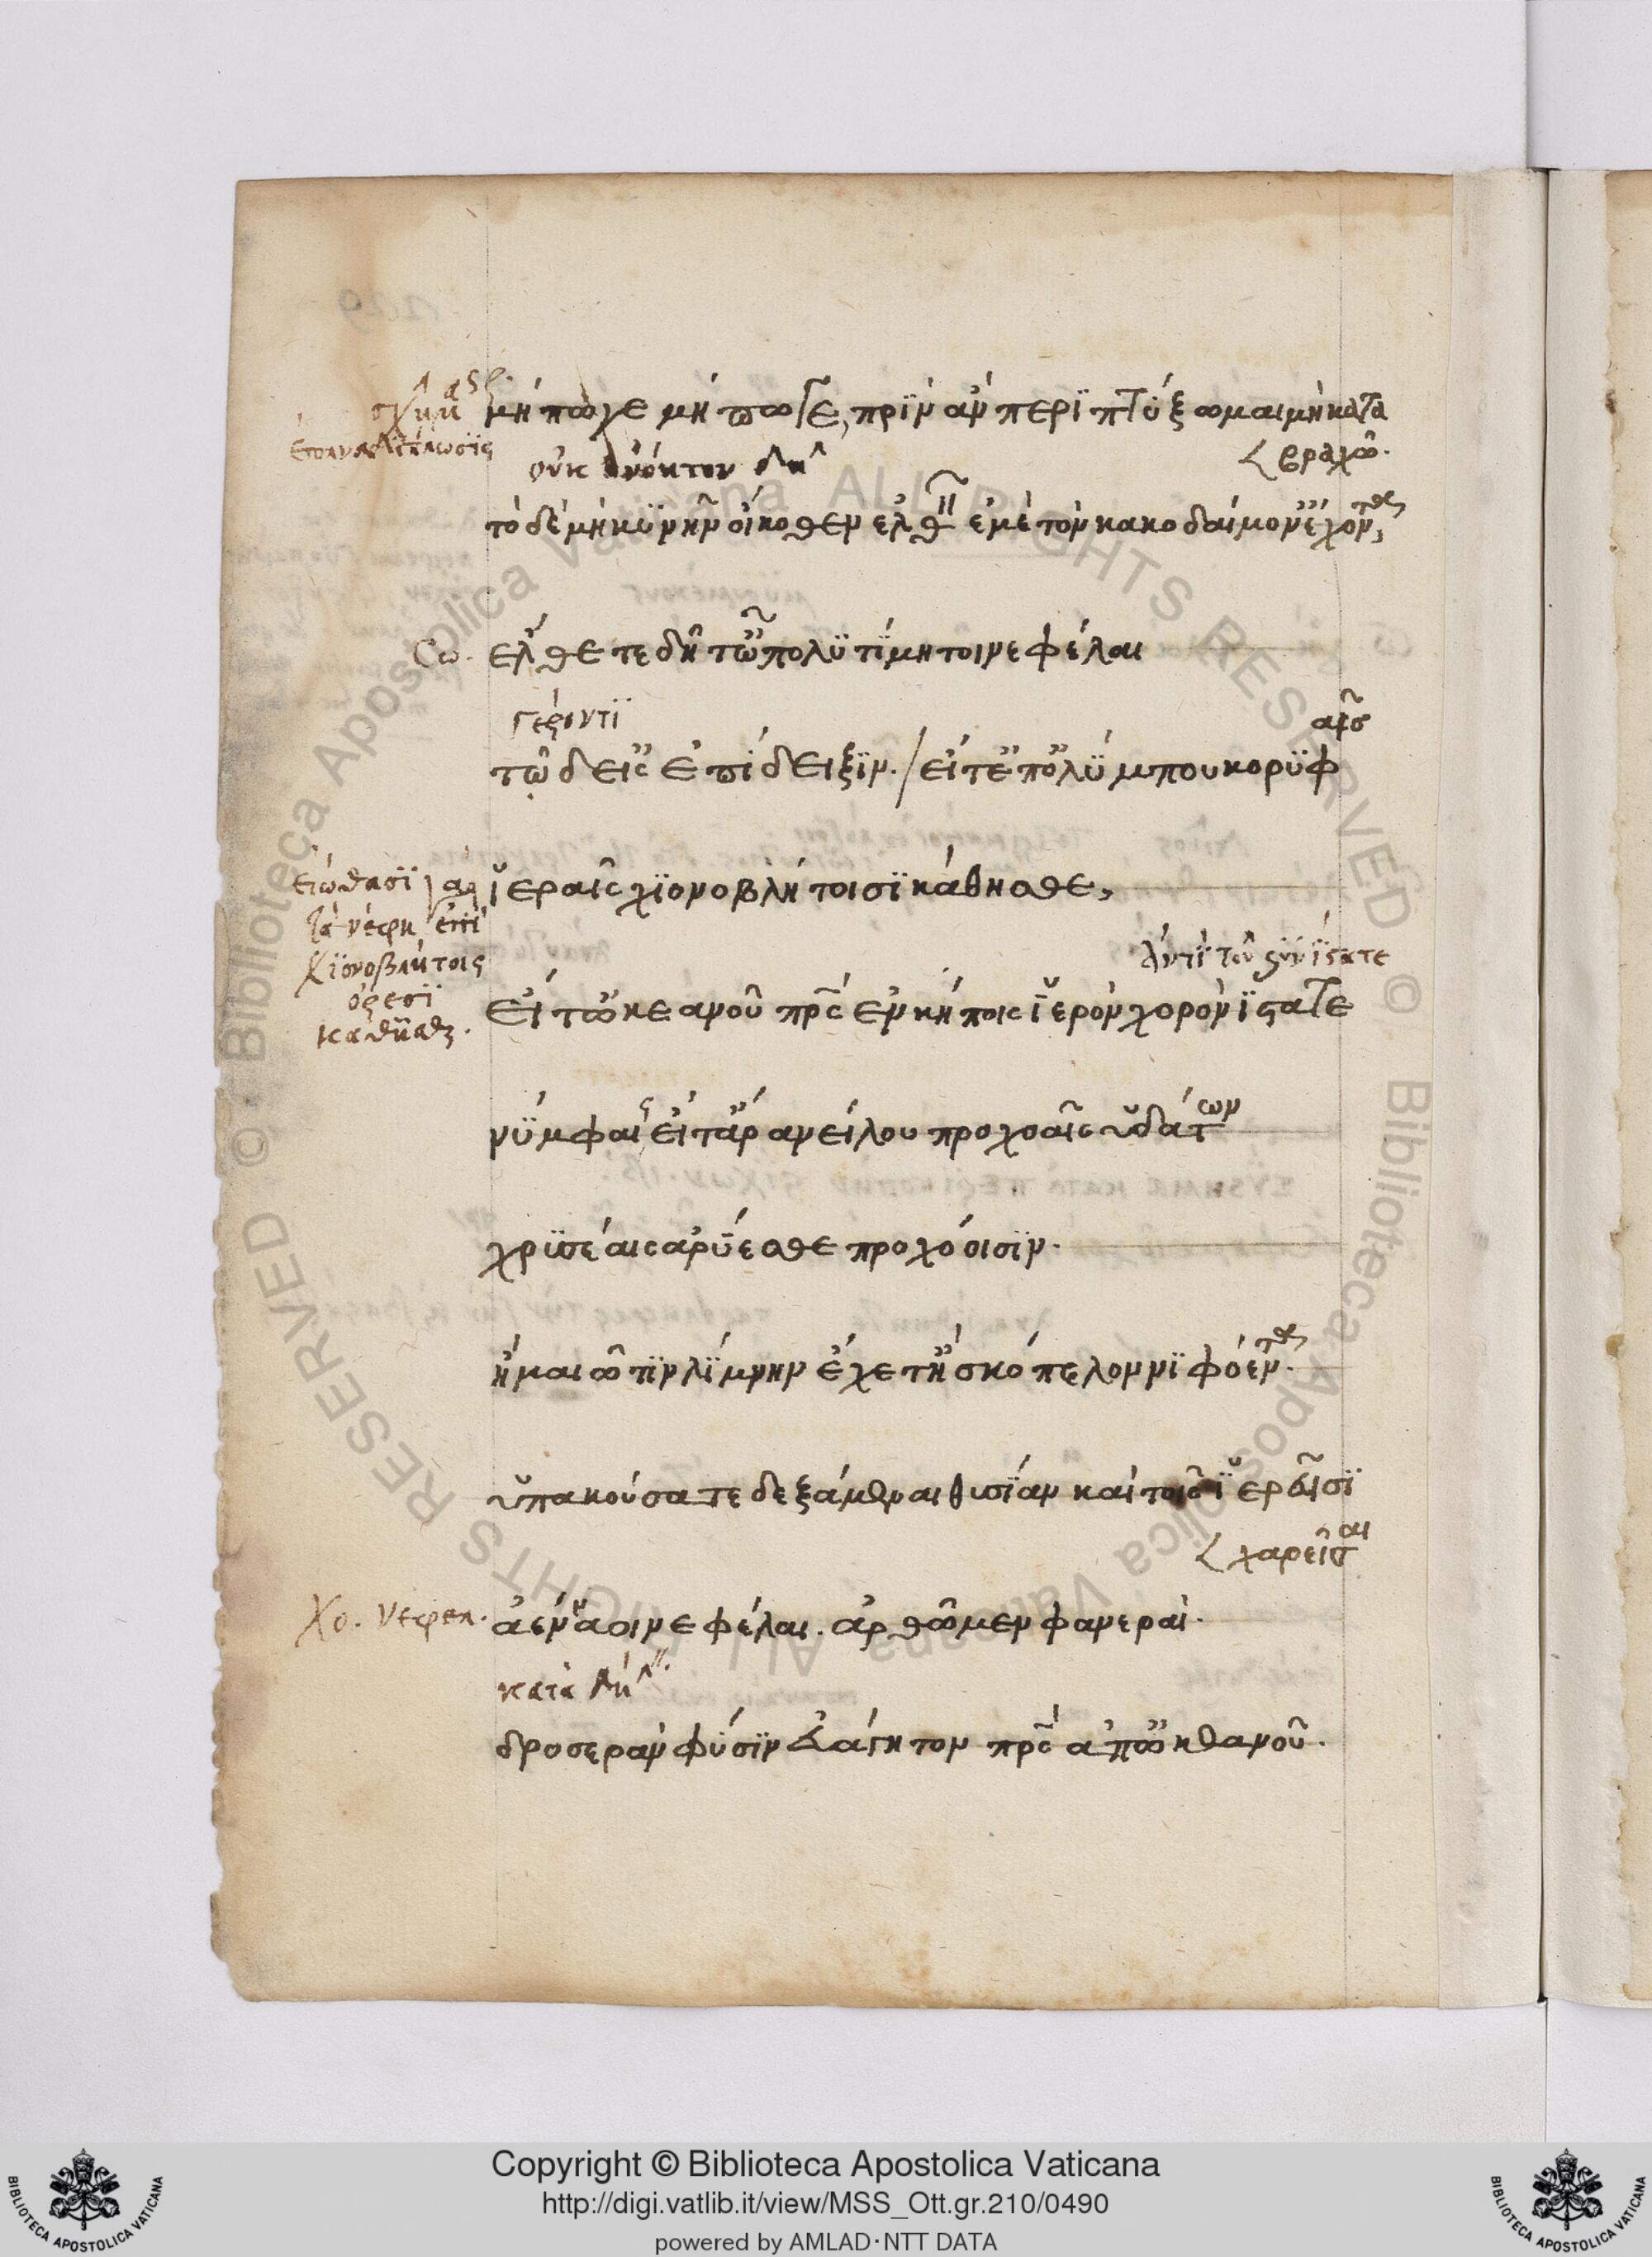 μήπωγε μήπωτε, πρὶν ἂν περιπτύξωμαι μὴ κατα
βραχῶ.
οὐκ ἀνόητον
τὸ δὲ μὴ κυνῆν οἴκοθεν ἐλθ ἐμὲ τὸν κακοδαίμον' ἔχοντας,
Cω. ἔλθετε δῆτ' ὦ πολυτίμητοι νεφέλαι
γέροντι
τῷδ' εἰς ἐπίδειξιν. / εἴτ' ἐπ' ὀλύμπου κορυφαῖς
εἰώθασι
τὰ νέφη ἐπὶ
χιονοβλήτοις
ὄρεσι
ἱεραῖς χιονοβλήτοισι κάθησθε,
ἀντὶ τοῦ συνίστατε
εἴτ' ὠκεανοῦ πρς ἐν κήποις ἱερὸν χορὸν ἵστατε
νύμφαις, εἴτ' ἄρα νείλου προχοαῖς ὑδάτων
χρυσέαις ἀρύεσθε προχόοισιν.
ἢ μαιῶτιν λίμνην ἔχετ' ἢ σκόπελον νιφόεντος.
ὑπακούσατε δεξάμεναι θυσίαν καὶ τοῖς ἱεροῖσι
χαρεῖσαι
Χο. Νεφελ. ἀένναοι νεφέλαι. ἀρθῶμεν φανεραὶ.
κατὰ
δροσερὰν φύσιν εὐάγητον πρς ἀπ' ὠκεανοῦ.
Copyright © Biblioteca Apostolica Vaticana
http://digi.vatlib.it/view/MSS_Ott.gr.210/0490
powered by AMLAD·NTT DATA